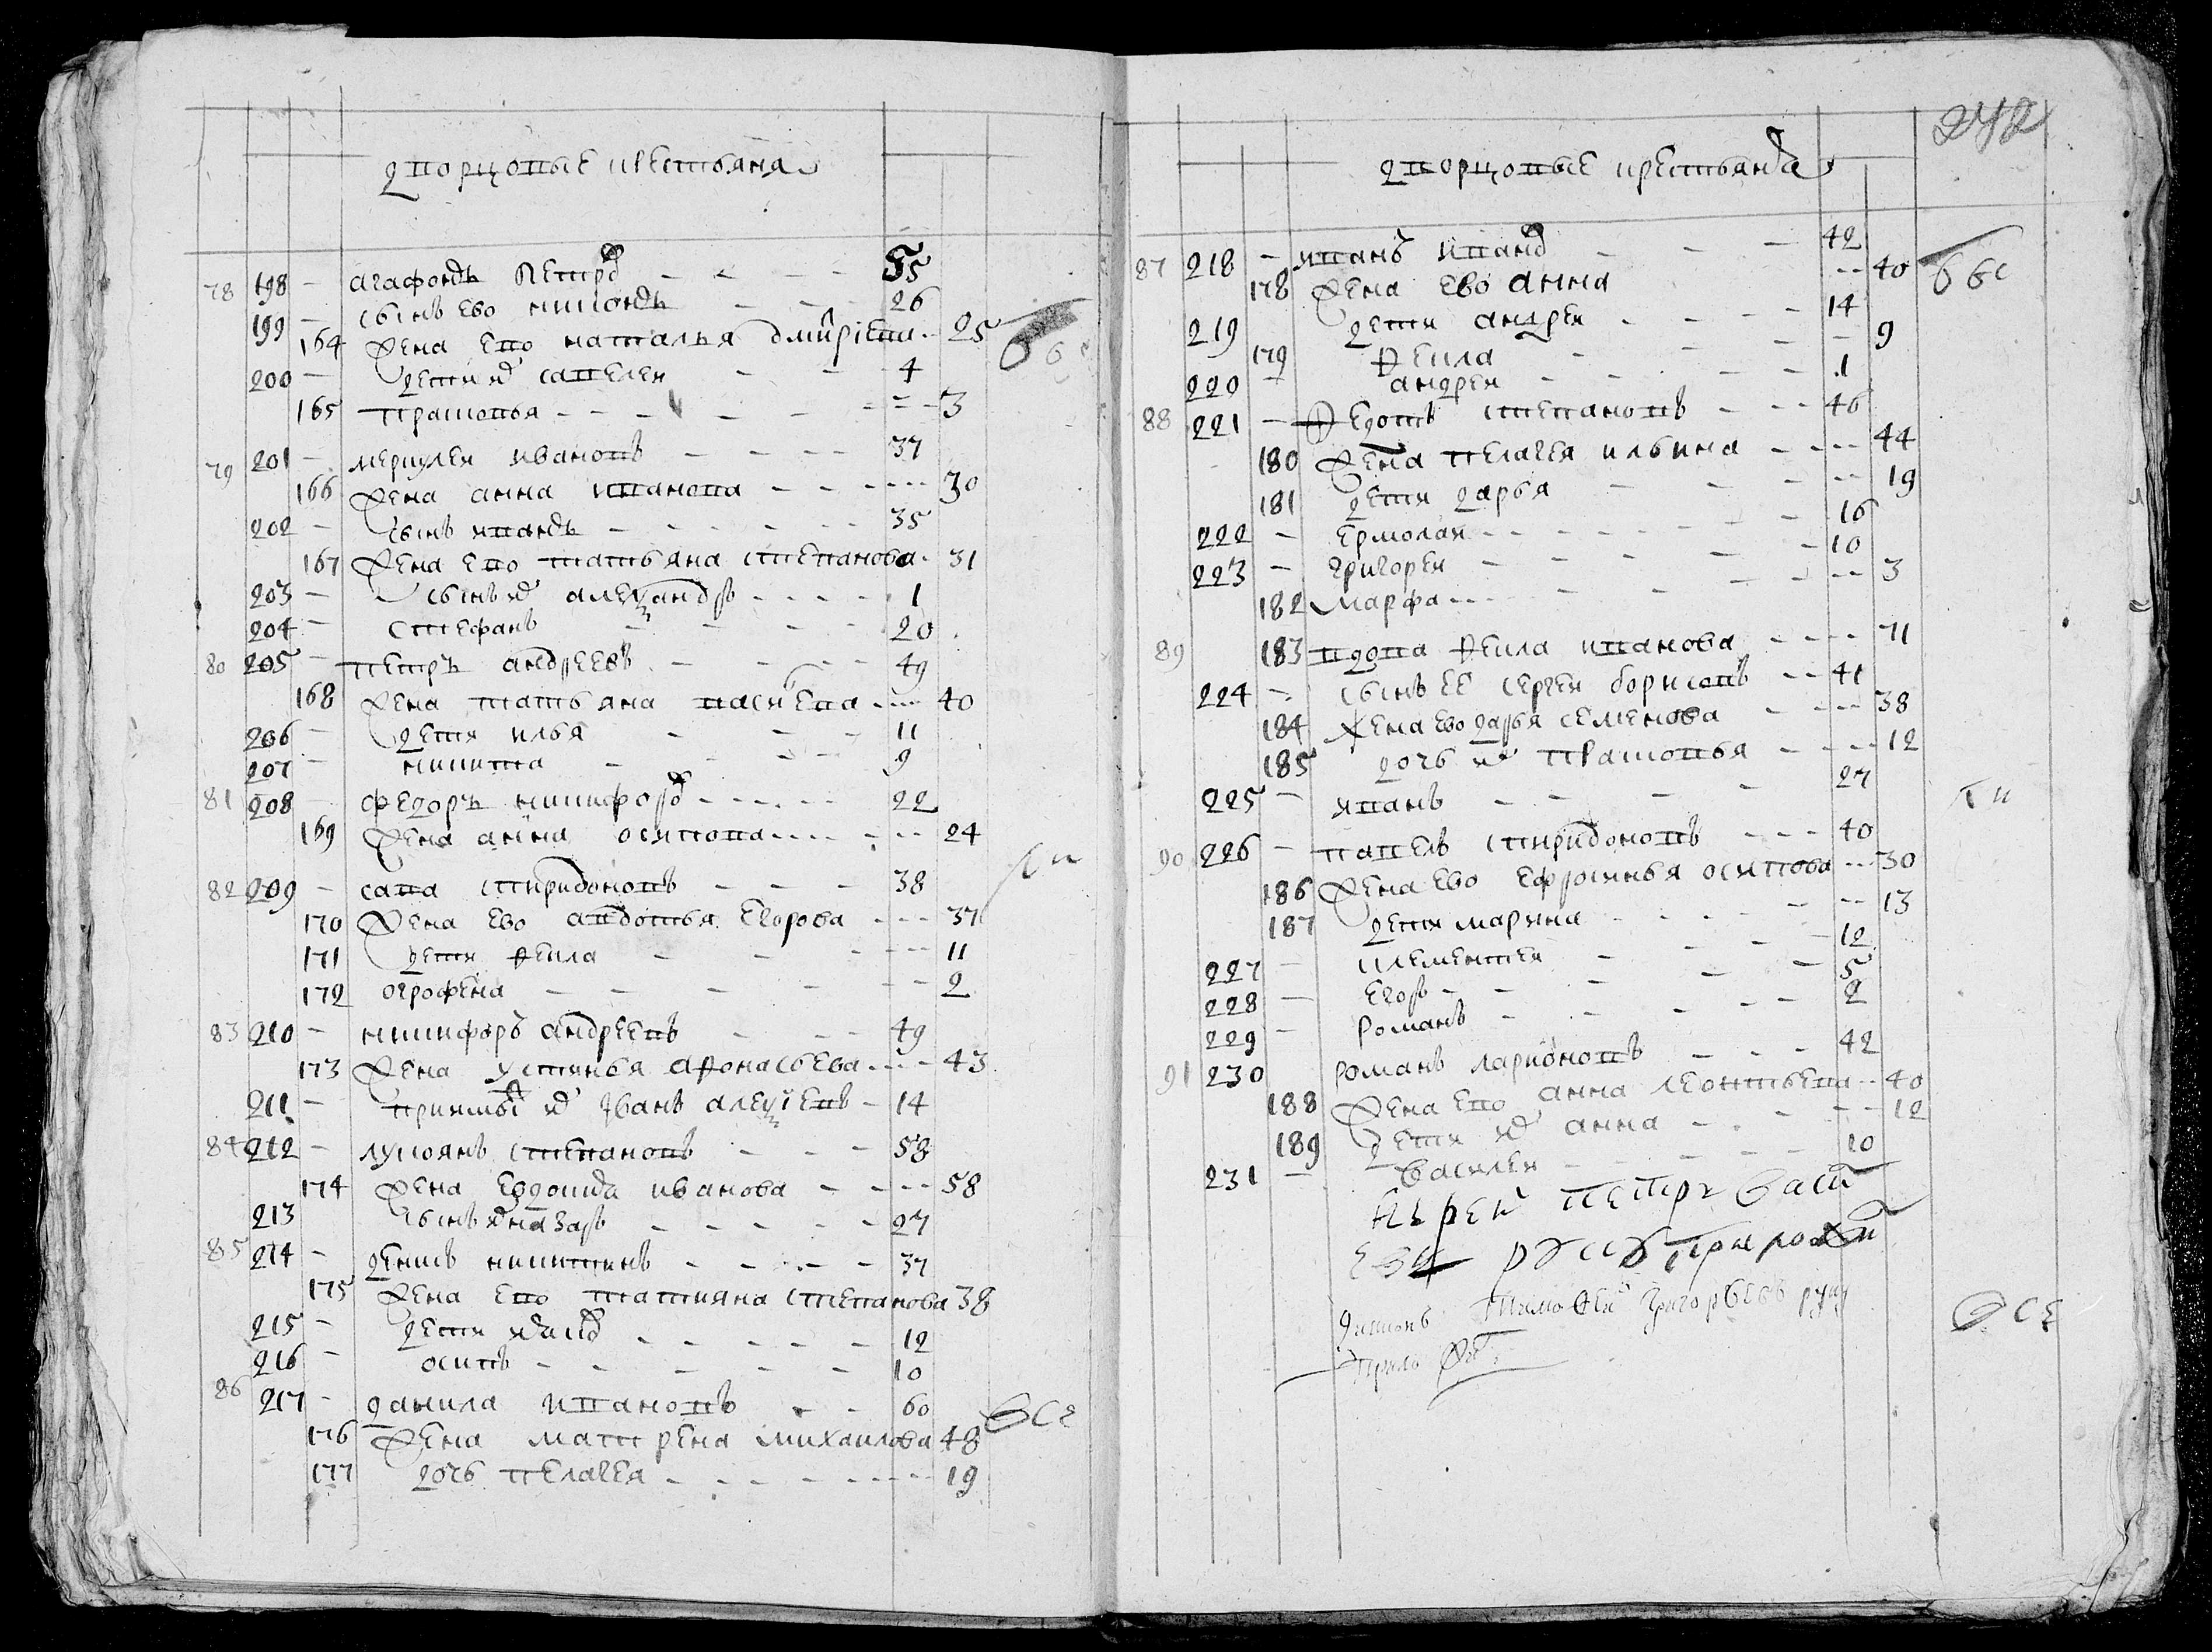 дворцовые крестьяня
78 198 - агафонъ петровъ - - - - 55
199 - сынъ ево никонъ - - - 26
164 жена ево наталья дмитриева - - 25
200 - дети ихъ савелей - - - 4
165 прасковья - - - - - - - 3
79 201 - меркулей ивановъ - - - - 37
166 жена анна иванова - - - - 30
202 - сынъ иванъ - - - - - 35
167 жена ево татьяна степанова - 31
203 - сынъ ихъ александръ - - - - 1
204 - стефанъ - - - - 20
80 205 - петръ андреевъ - - - 49
168 жена татьяна васильева - - 40
206 - дети илья - - - 11
207 - никита - - - 9
81 208 - федоръ никифоровъ - - - - 22
169 жена анна осипова - - - - 24
82 209 - сава спиридоновъ - - - 38
170 жена ево авдотья егорова - - - 37
171 дети фекла - - - - 11
172 огрофена - - - - - 2
83 210 - никифоръ андреевъ - - - 49
173 жена устинья афонасьева - - - 43
211 - приимышъ ихъ иванъ алексеевъ - 14
84 212 - лукоянъ степановъ - - - 58
174 жена евдокида иванова - - - - 58
213 сынъ ихъ назаръ - - - - - 27
85 214 - денисъ никитинъ - - - - 37
175 жена ево татияна степанова 38
215 - дети яковъ - - - - - 12
216 - осипъ - - - - - 10
86 217 - данила ивановъ - - 60
176 жена матрена михаилова 48
177 дочь пелагея - - - - - - 19
242
дворцовые крестьяня
87 218 - иванъ ивановъ - - 42
178 жена ево анна - - 40
219 дети андрей - - - - 14
179 фекла - - - - 9
220 - андрей - - - - 1
88 221 - федотъ степановъ - - - 46
180 жена пелагея ильина - - - - 44
181 дети дарья - - - - 19
222 - ермолай - - - - - - 16
223 - григорей - - - - - 10
182 марфа - - - - - - 3
89 183 вдова фекла иванова - - - - 71
224 - сынъ ее сергей борисовъ - - 41
184 жена ево дарья семенова - - - - 38
185 дочь ихъ прасковья - - - - 12
225 - иванъ - - - - 27
90 226 - павелъ спиридоновъ - - - 40
186 жена ево ефросинья осипова - - - 30
187 дети марина - - - - - 13
227 - клементей - - - - 12
228 - егоръ - - - - - 5
229 - романъ - - - - - 2
91 230 романъ ларионовъ - - - 42
188 жена ево анна леонтьева - - 40
189 дети ихъ анна - - - - 12
231 - василей - - - - - 10
иерей петръ васи
дьяконъ тимофей григорьевъ руку